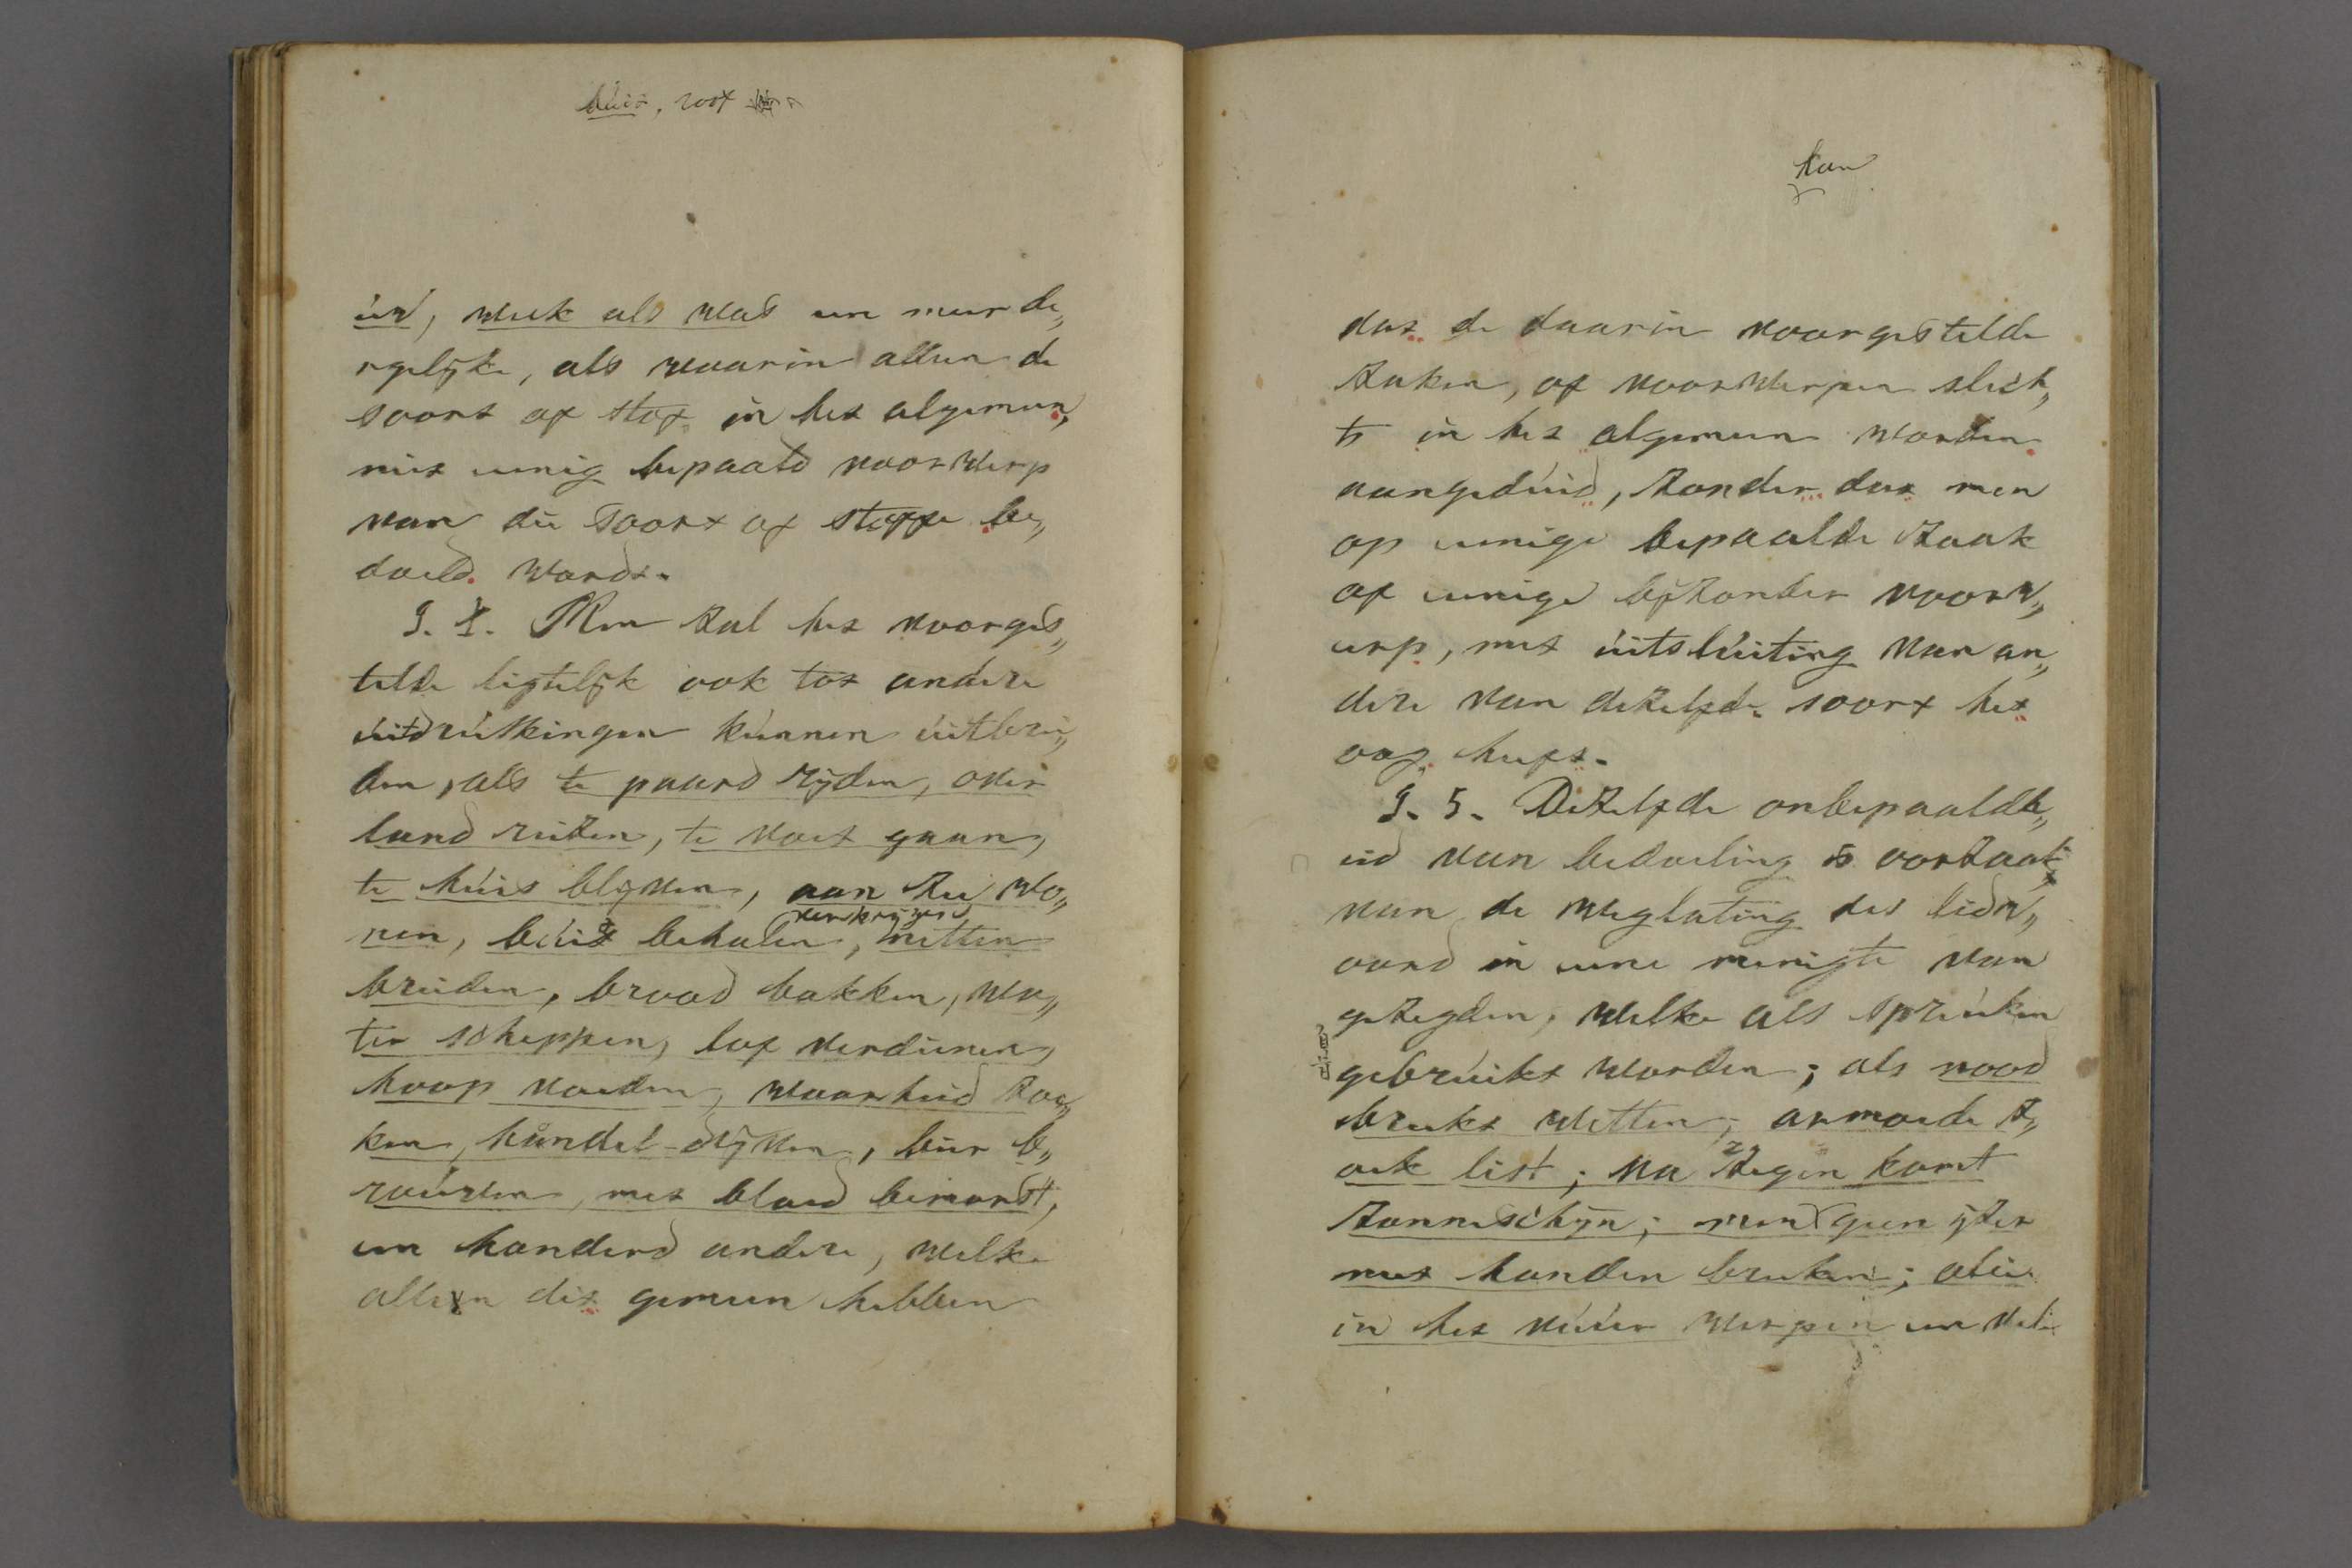 buit, voor
ier, week als was en meer de„
rgelijke, als waarin alleen de
soort of stof in het algemeen,
niet eenig bepaald voorwerp
van die soort of stoffe be„
doeld wordt.
§. 4. Men zal het voorges„
telde ligtelijk ook tot andere
uitdrukkingen kunnen uitbrei„
den, als te paard rijden, over
land reizen, te voet gaan,
te huis blijven, aan zee wo„
nen, buit behalen, netten
breiden, brood bakken, wa„
ter scheppen, lof verdienen,
hoop voeden, waarheid zoe„
ken, handel drijven, bier b„
rouwen, met bloed bemorst,
en honderd andere, welke
alleen dit gemeen hebben
kan
dat de daarin voorgestelde
zaken, of voorwerpen slech„
ts in het algemeen worden
aangeduid, zonder dat men
op eenige bepaalde zaak
of eenige bijzonder voorw„
erp, met uitsluiting van an„
dere van dezelfde soort het
oog heeft.
§. 5. Dezelfde onbepaaldh„
eid van bedoeling is oorzaak
van de weglating des lidw„
oord in eene menigte van
gezegden, welke als spreuken
gebruikt worden; als nood
breekt wetten; armoede z„
oek list; na regen komt
zonneschijn; men geen ijzer
met handen breken; olie
in het vuur werpen en vele